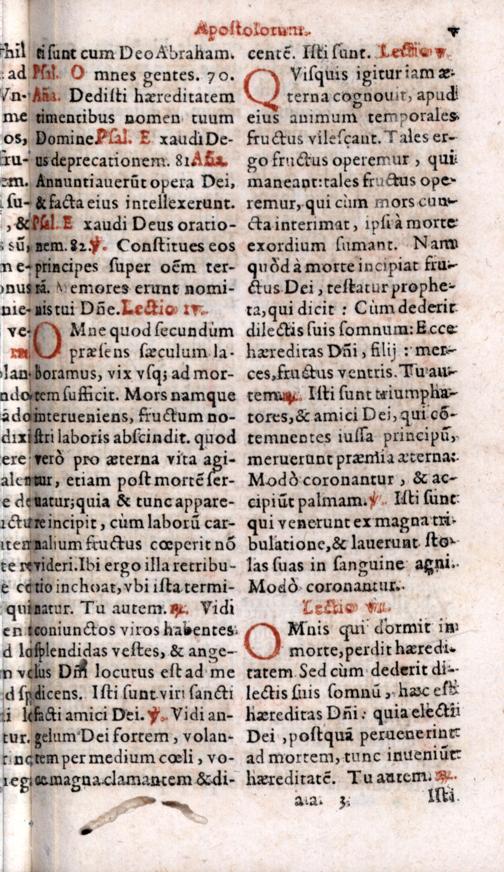 Apostolorum.
v
tisunt cum Deo Abraham.
Psal. O mnes gentes. 70.
Aña. Dedisti hæreditatem
timentibus nomen tuum
Domine. Psal. E xaudi De-
us deprecationem. 81 Aña.
Annuntiauerūt opera Dei,
& facta eius intellexerunt.
Psal. E xaudi Deus oratio-
nem. 82. ℣. Constitues eos
principes super oēm ter-
rā. Memores erunt nomi-
nis tui Dñe. Lectio iv.
OMne quod secundùm
præsens sæculum la-
boramus, vix vsq; ad mor-
tem sufficit. Mors namque
interueniens, fructum no-
stri laboris abscindit. quod
verò pro æterna vita agi-
tur, etiam post mortē ser-
uatur; quia & tunc appare-
re incipit, cùm laborū car-
nalium fructus cœperit nō
videri. Ibi ergo illa retribu-
tio inchoat, vbi ista termi-
natur. Tu autem. ℟. Vidi
coniunctos viros habentes
splendidas vestes, & ange-
lus Dñi locutus est ad me
dicens. Isti sunt viri sancti
facti amici Dei. ℣. Vidi an-
gelum Dei fortem, volan-
tem per medium cœli, vo-
ce magna clamantem & di-
centē. Isti sunt. Lectio v.
QVisquis igitur iam æ-
terna cognouit, apud
eius animum temporales
fructus vilescant. Tales er-
go fructus operemur, qui
maneant: tales fructus ope-
remur, qui cùm mors cun-
cta interimat, ipsi à morte
exordium sumant. Nam
quòd à morte incipiat fru-
ctus Dei, testatur prophe-
ta, qui dicit: Cùm dederit
dilectis suis somnum: Ecce
hæreditas Dñi, filij: mer-
ces, fructus ventris. Tu au-
tem. ℟. Isti sunt triumpha-
tores, & amici Dei, qui cō-
temnentes iussa principū,
meruerunt præmia æterna:
Modò coronantur, & ac-
cipiūt palmam. ℣. Isti sunt
qui venerunt ex magna tri-
bulatione, & lauerunt sto-
las suas in sanguine agni.
Modò coronantur.
Lectio vii.
OMnis qui dormit in
morte, perdit hæredi-
tatem. Sed cùm dederit di-
lectis suis somnū, hæc est
hæreditas Dñi: quia electi
Dei, postquā peruenerint
ad mortem, tunc inueniūt
hæreditatē. Tu autem. ℟.
aa 3
Isti